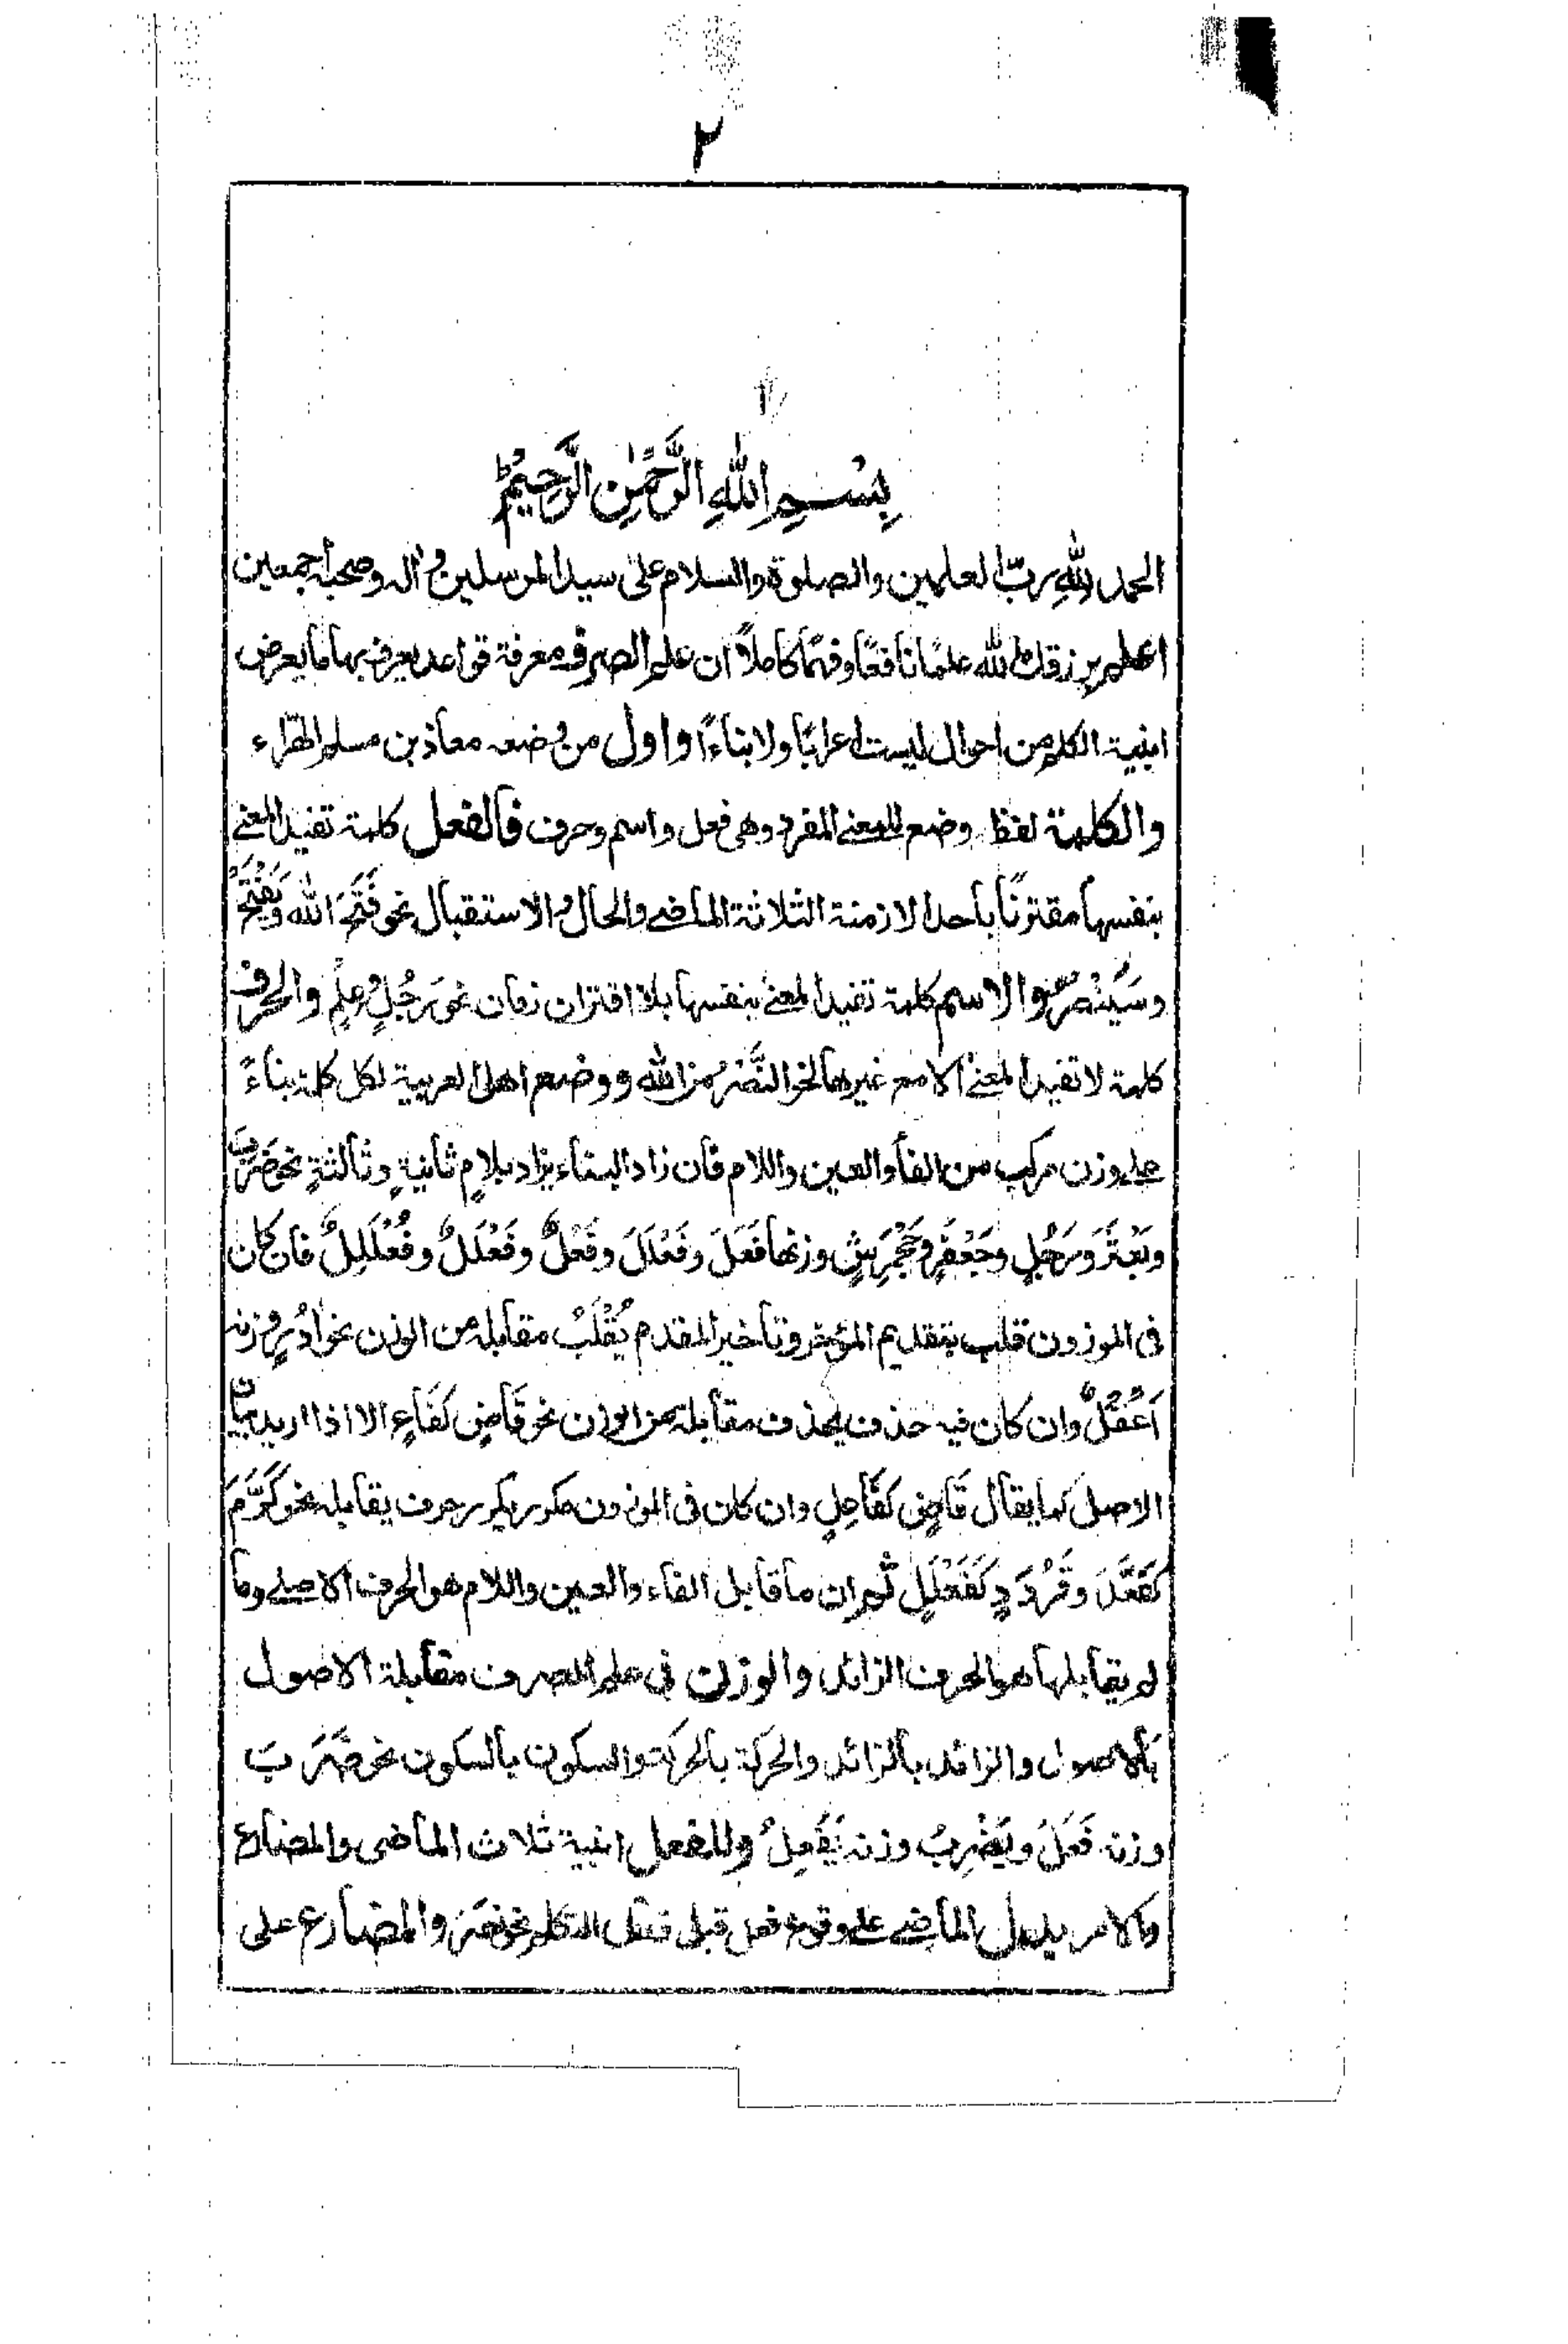 ٢
بِسْمِ اللهِ الرَّحْمٰنِ الرَّحِيْمِ
الحمد للهِ ربّ العلمين والصلوة والسلام على سيد المرسلين واٰله وصحبه أجمعين
اعلم رزقك الله علمًا نافعًا وفهمًا كاملاً ان علم الصرف معرفة قواعد يعرف بها ما يعرض
ابنية الكلم من احوال ليست اعرابًا ولا بناءً واول من وضعه معاذ بن مسلم الهرّاء
والكلمة لفظ وضع للمعنى المفرد وهى فعل واسم وحرف فالفعل كلمة تفيد المعنى
بنفسها مقترنًا باحد الازمنة الثلاثة الماضى والحال والاستقبال نحو فَتَحَ الله وَيَفْتَحُ
وسَيَنْصُرُ والاسم كلمة تفيد المعنى بنفسها بلا اقتران زمان نحو رَجُلٍ وعِلْمٍ والحرف
كلمة لا تفيد المعنى الا مع غيرها نحو النَّصْرُ من الله ووضع اهل العربية لكل كلمة بناءً
على وزن مركب من الفا والعين واللام فان زاد البناء يزاد بلامٍ ثانيةٍ وثالثةٍ نحو ضَرَبَ
وبَعْثَرَ ورَجُلٍ وجَعْفَرٍ وجَحْمَرِشٍ وزنها فَعَلَ وفَعْلَلَ وفَعُلٌ وفَعْلَلٌ وفَعْلَلِلٌ فان كان
فى الموزون قلب بتقديم المؤخر وتأخير المقدم يُقْلَبُ مقابله من الوزن نحو اٰدُرٍ وزنه
اَعْفُلٌ وان كان فيه حذف يحذف مقابله من الوزن نحو قَاضٍ كَفَاعٍ الا اذا اريد بيان
الاصل كما يقال قَاضٍ كفَاعِلٍ وان كان فى الموزون مكرر يكرر حرف يقابله نحو كَرَّمَ
كَفَعَّلَ وقَرْدَدٍ كَفَعْلَلٍ ثم ان ما قابل الفاء والعين واللام هو الحرف الاصلى وما
لم يقابلها هو الحرف الزائد والوزن فى علم الصرف مقابلة الاصول
بالاصول والزائد بالزائد والحركة بالحركة والسكون بالسكون نحو ضَرَبَ
وزنه فَعَلَ ويَضْرِبُ وزنه يَفْعِلُ وللفعل ابنية ثلاث الماضى والمضارع
والامر يدل الماضى على وقوع فعل قبل التكلم نحو نصَرَ والمضارع على